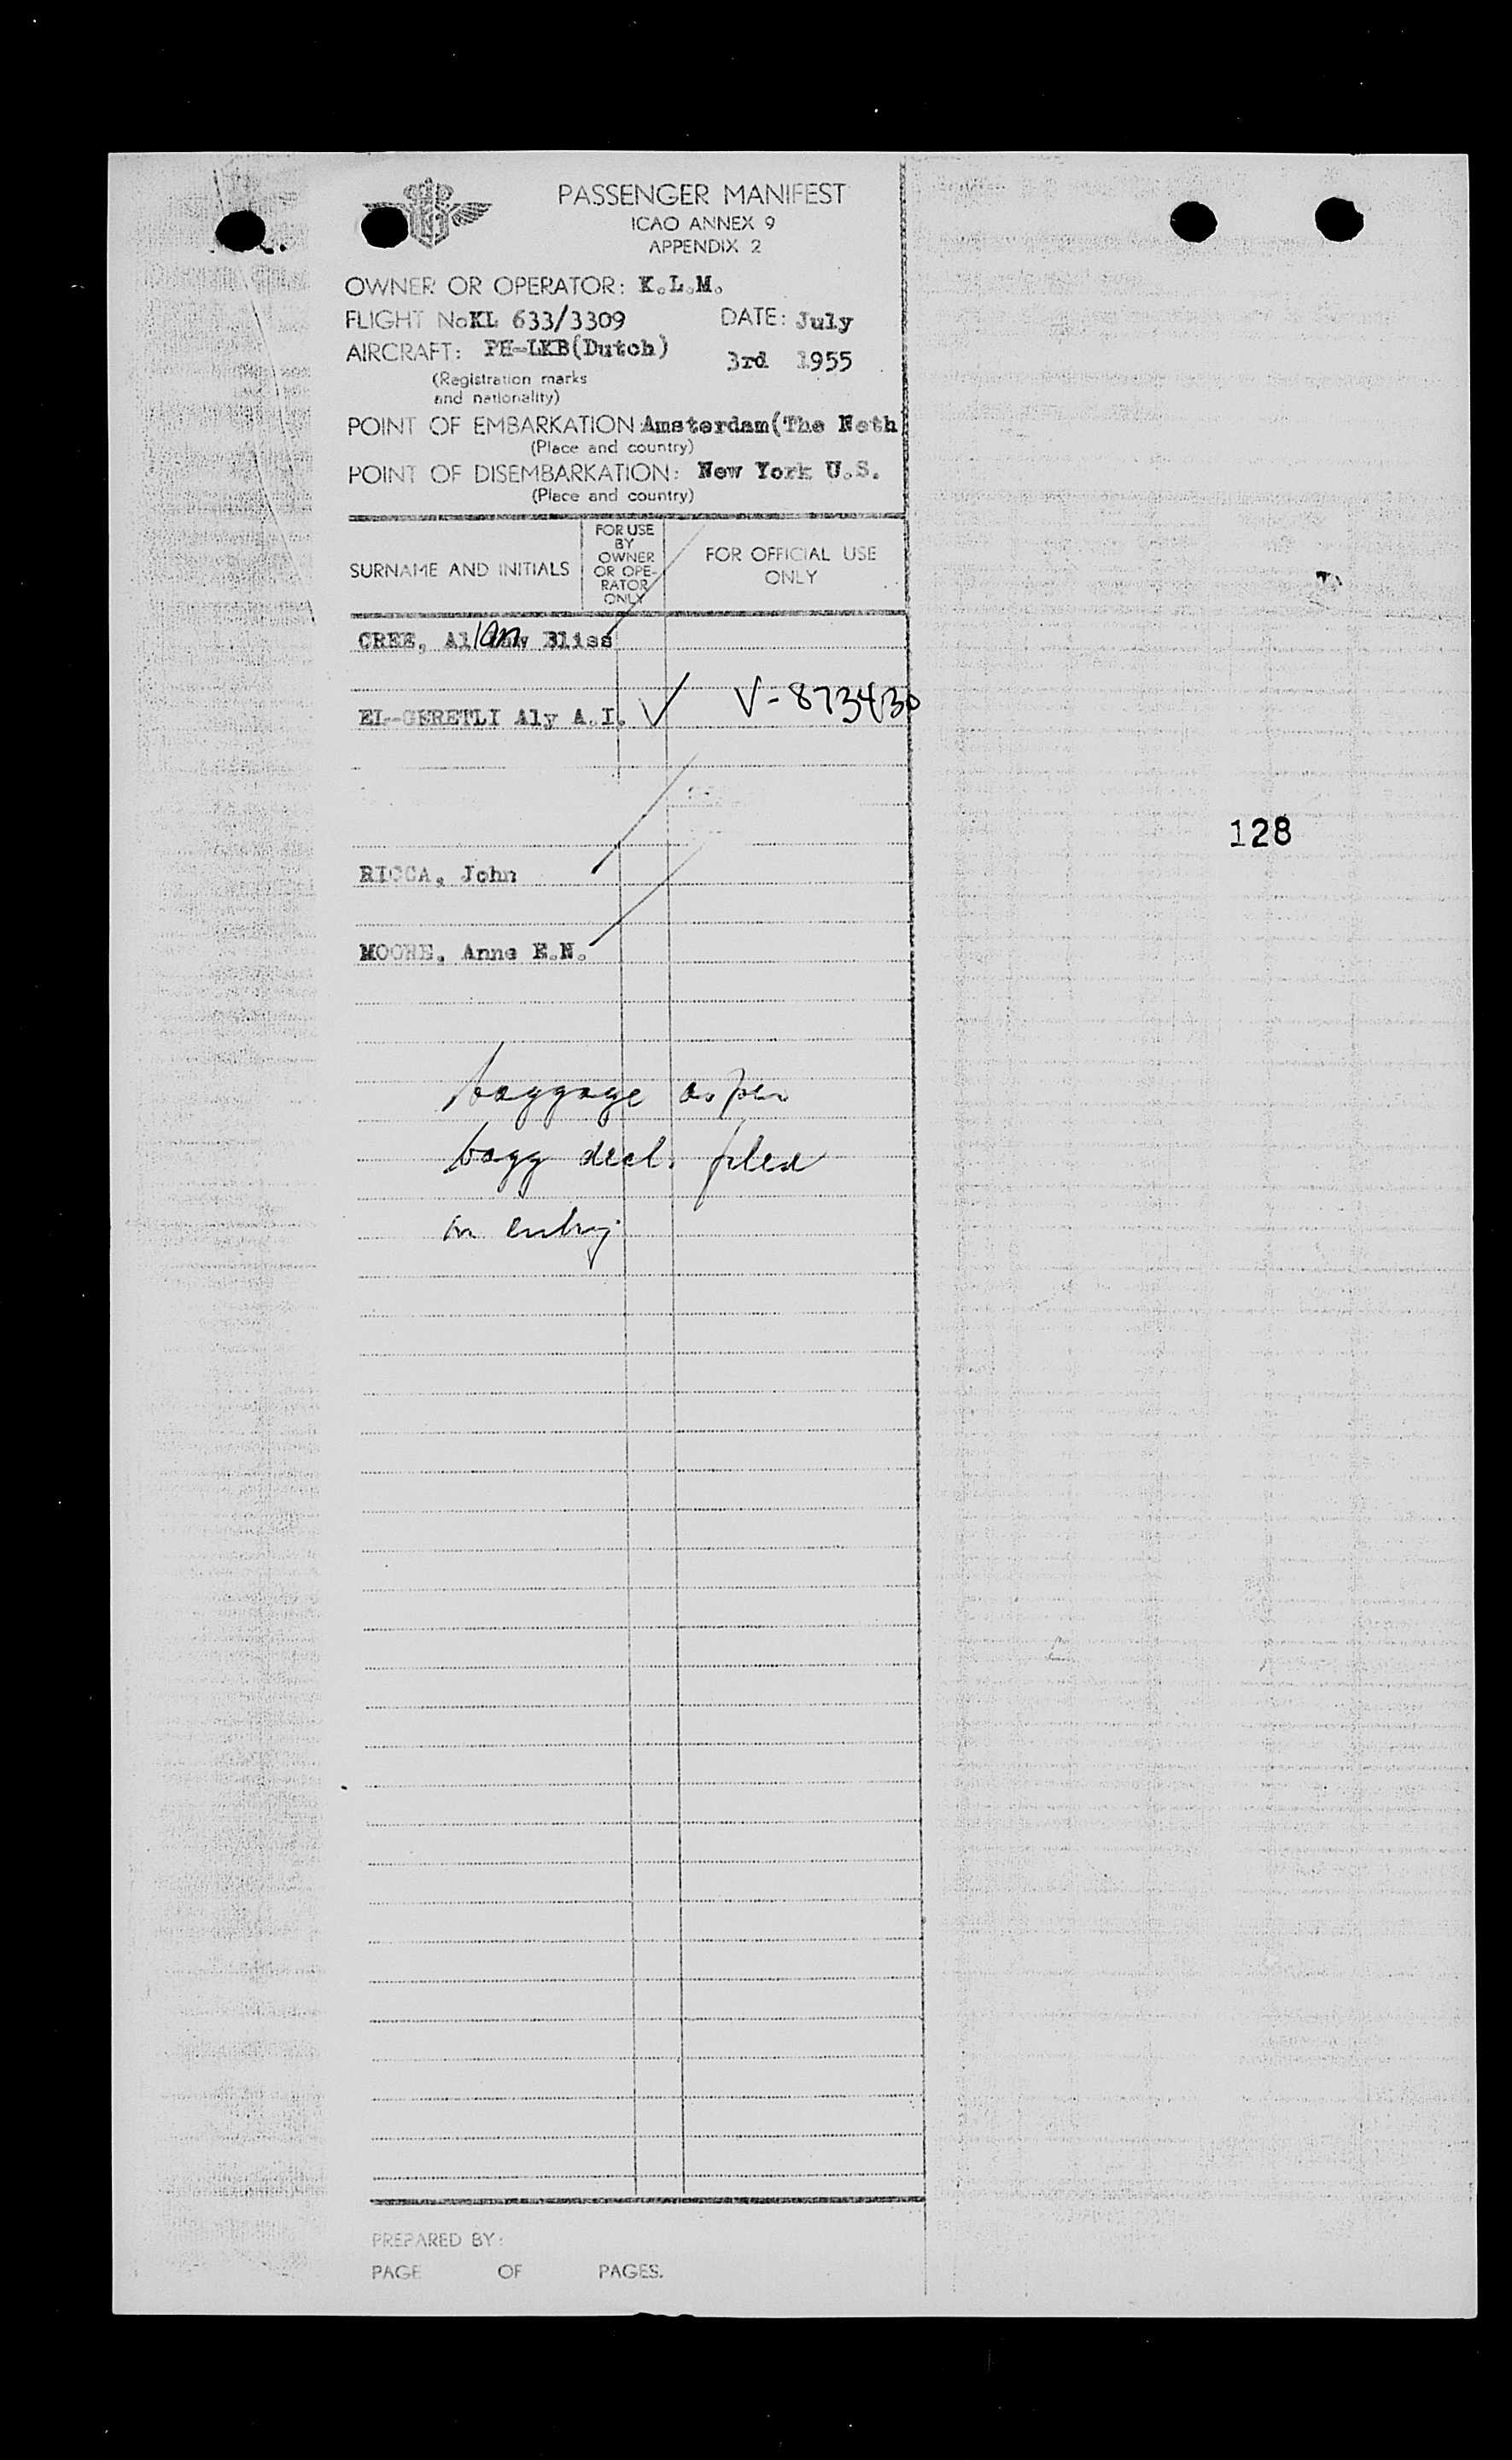 PASSENGER MANIFEST
ICAO ANNEX 9
APPENDIX 2
OWNER OR OPERATOR: K.L.M.
FLIGHT No KL 633/3309 DATE: July
AIRCRAFT: PH-LKB(Dutch) 3rd 1955
(Registration marks
and nationality)
POINT OF EMBARKATION: Amsterdam(The Neth
(Place and country)
POINT OF DISEMBARKATION: New York U.S.
(Place and country)
SURNAME AND INITIALS
FOR USE
BY
OWNER
OR OPE-
RATOR
ONLY
FOR OFFICIAL USE
ONLY
CREE, Allan Bliss
EL-GERETLI Aly A.I. V-873430
128
RICCA, John
MOORE, Anne E.N.
baggage as per
bagg decl. filed
in entry
PREPARED BY:
PAGE OF PAGES.